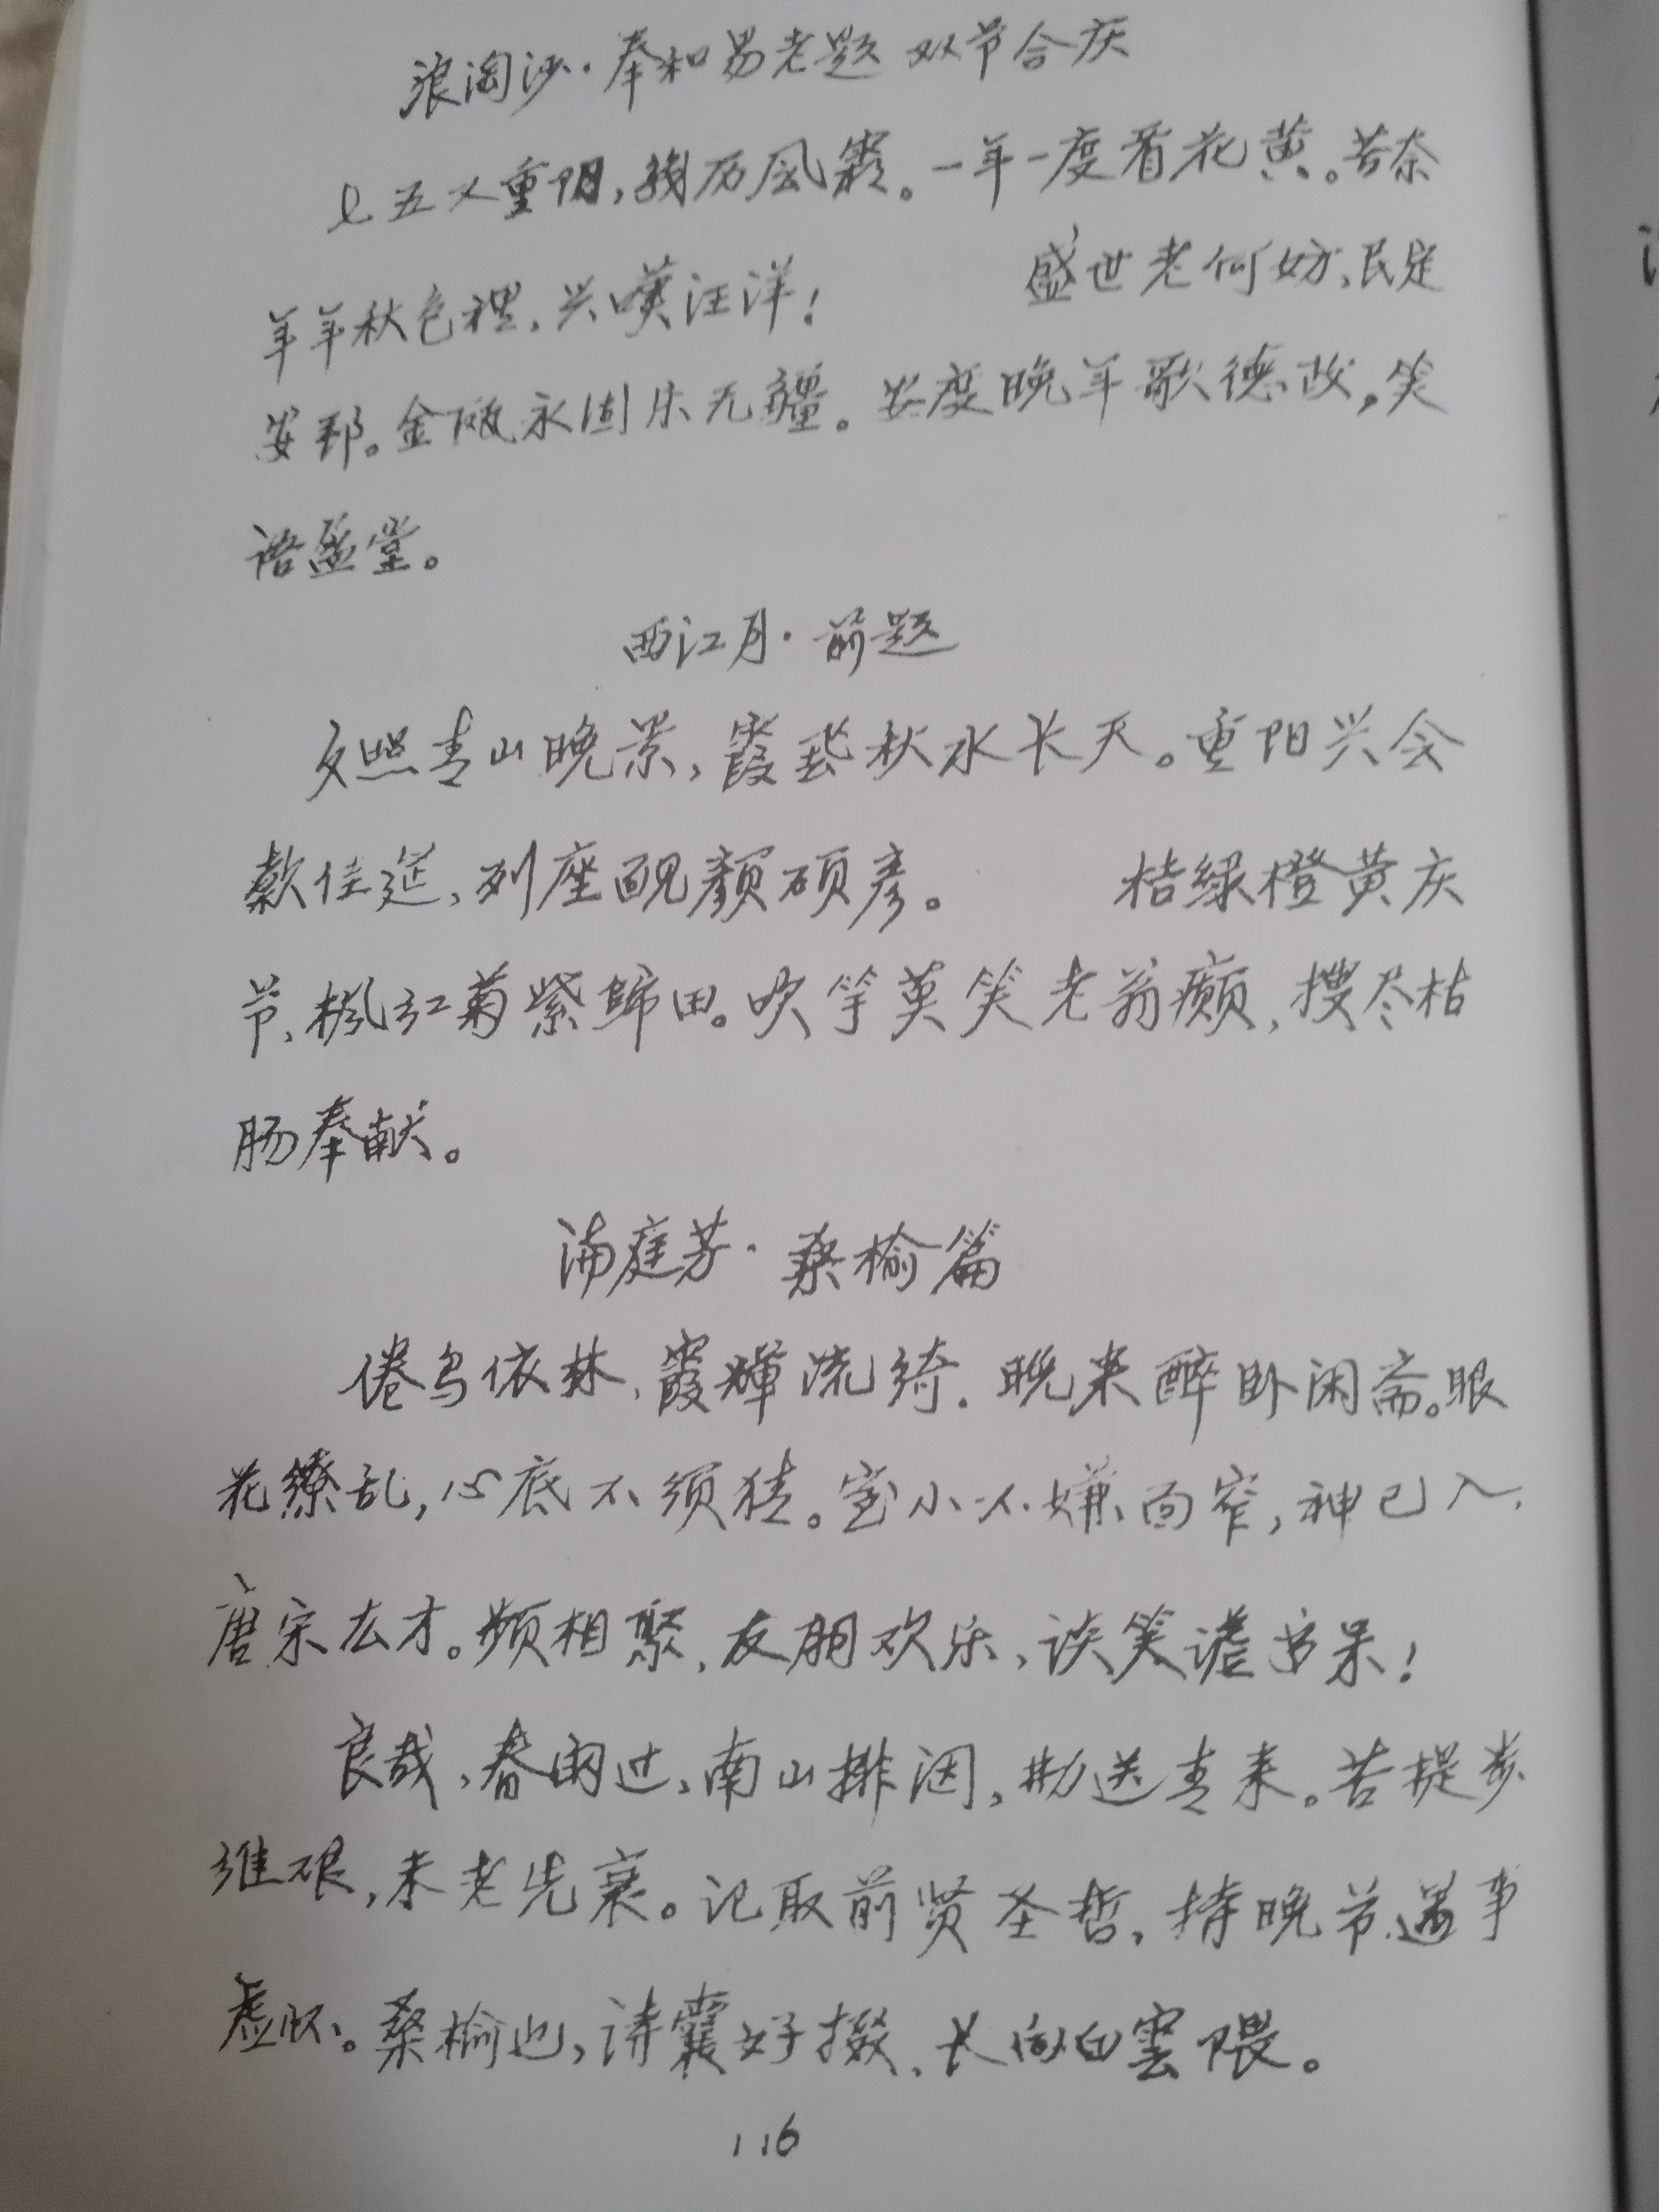 浪淘沙·奉和易老题双节合庆
七五又重阳，残历风霜。一年一度看花黄。苦奈
年年秋色裡，兴嘆汪洋！ 盛世老何妨，民足
安邦。金瓯永固乐无疆。共度晚年歌德政，笑
语盈堂。
西江月·前题
夕照青山晚景，霞飞秋水长天。重阳兴会
款佳筵，列座靓颜硕彦。 桔绿橙黄庆
节，枫红菊紫归田。吹竽莫笑老翁癫，搜尽枯
肠奉献。
满庭芳·桑榆篇
倦鸟依林，霞辉流绮，晚来醉卧闲斋。眼
花缭乱，心底不须猜。室小不嫌面窄，神已入，
唐宋去才。频相聚，友朋欢乐，谈笑谑书呆！
良哉，春雨过，南山排闼，助送青来。苦提步
维艰，未老先衰。记取前贤圣哲，持晚节，遇事
虚怀。桑榆也，诗囊好掇，长向白雲隈。
116